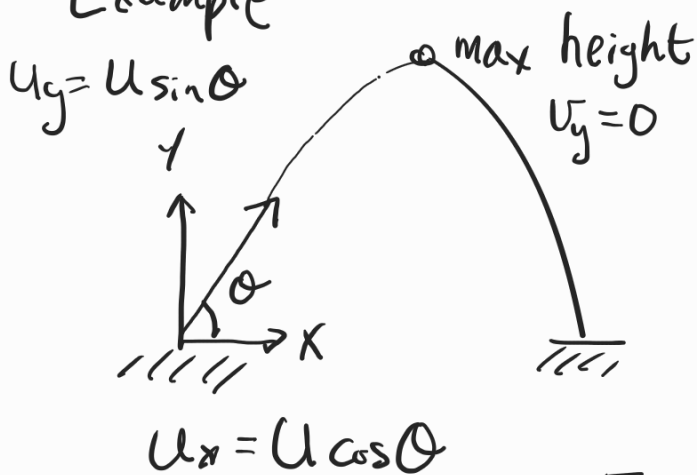 Example
u_y = u sinθ
max height
v_y = 0
Y
θ
X
u_x = u cosθ